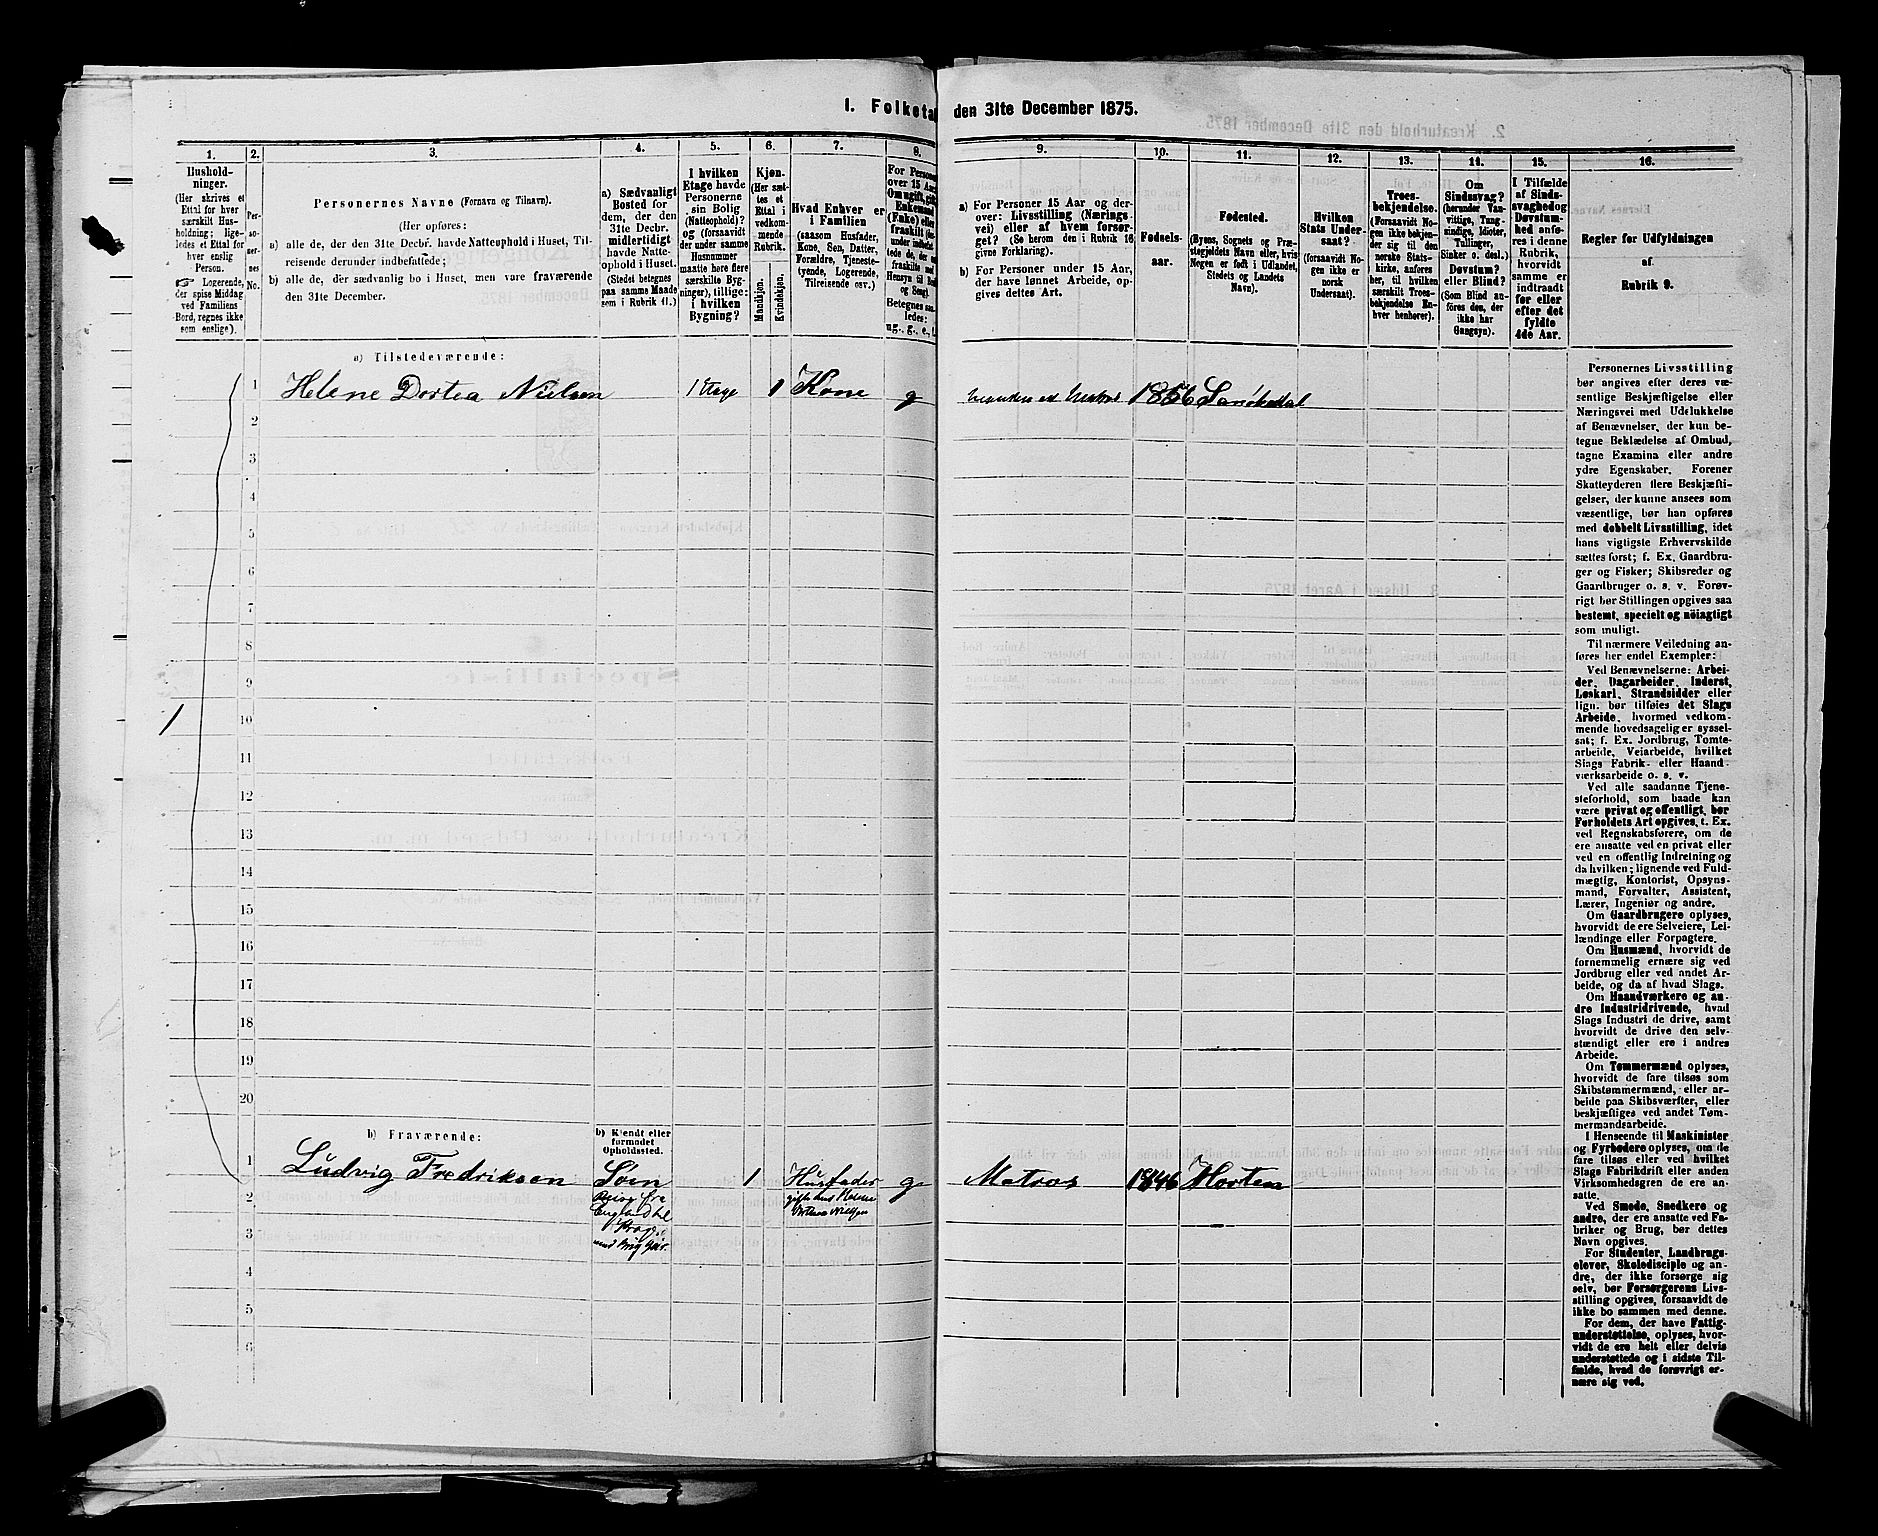 1. Folketal den 31te December 1875.
1.
2.
3.
4.
5.
6.
7.
8.
9.
10.
11.
12.
13.
14.
15.
16.
Hushold-
ninger.
(Her skrives et
Ettal for hver
særskilt Hus-
holdning; lige-
ledes et Ettal for
hver enslig
Person.
☞ Logerende,
der spise Middag
ved Familiens
Bord, regnes ikke
som enslige).
Per-
so-
ner-
nes
No.
Personernes Navne (Fornavn og Tilnavn).
(Her opføres:
a) alle de, der den 31te Decbr. havde Natteophold i Huset, Til-
reisende derunder indbefattede;
b) alle de, der sædvanlig bo i Huset, men vare fraværende
den 31te December.
a) Sædvanligt
Bosted for
dem, der den
31te Decbr.
midlertidigt
havde Natte-
ophold i Huset.
(Stedet betegnes
paa samme Maade
som i Rubrik 11.)
I hvilken
Etage havde
Personerne
sin Bolig
(Natteophold)?
og (forsaavidt
der under samme
Husnummer
maatte høre flere
særskilte Byg-
ninger), tillige:
i hvilken
Bygning?
Kjøn.
(Her sæt-
tes et
Ettal i
vedkom-
mende
Rubrik.
Mandkjøn.
Kvindekjøn.
Hvad Enhver er
i Familien
(saasom Husfader,
Kone, Søn, Datter,
Forældre, Tjeneste-
tyende, Logerende,
Tilreisende osv.)
For Personer
over 15 Aar
Om ugift, gift
Enkemand
(Enke) eller
fraskilt
Betegnes saa-
ledes:
ug., g., e.,
a) For Personer 15 Aar og der-
over: Livsstilling (Nærings-
vei) eller af hvem forsør-
get? (Se herom den i Rubrik 16
givne Forklaring).
b) For Personer under 15 Aar,
der have lønnet Arbeide, op-
gives dettes Art.
Fødsels-
aar.
Fødested.
(Byens, Sognets og Præ-
stegjeldets Navn eller, hvis
Nogen er født i Udlandet,
Stedets og Landets
Navn).
Hvilken
Stats Under-
saat?
(forsaavidt No-
gen ikke er
norsk
Undersaat).
Troes-
bekjendelse.
(Forsaavidt No-
gen ikke bekjen-
der sig til den
norske Stats-
kirke, anføres
her, til hvilken
særskilt Troes-
bekjendelse En-
hver henhører).
Om
Sindssvag?
(herunder Van-
vittige, Tung-
sindige, Idioter,
Tullinger,
Sinker o. desl.)
Døvstum?
eller Blind?
(Som Blind an-
føres den, der
ikke har
Gangsyn).
I Tilfælde
af Sinds-
svaghed og
Døvstum-
hed anfø-
res i denne
Rubrik,
hvorvidt
samme er
indtraadt
før eller
efter det
fyldte
4de Aar.
Regler for Udfyldningen
af
Rubrik 9.
a) Tilstedeværende:
1 Helene Dortea Nielsen 1 Etage 1 Kone g 1856 Sanökedal
2
3
4
5
6
7
8
9
10
11
12
13
14
15
16
17
18
19
20
1
b) Fraværende:
b) Kjendt eller
formodet
Opholdssted.
1 Ludvig Fredriksen Søen 1 Husfader g Matros 1846 Horten
Reise fra
England til
med Brig
gift
2
3
4
5
6
Personernes Livsstilling
bør angives efter deres væ-
sentlige Beskjæftigelse eller
Næringsvei med Udelukkelse
af Benævnelser, der kun be-
tegne Beklædelse af Ombud,
tagne Examina eller andre
ydre Egenskaber. Forener
Skatteyderen flere Beskjæfti-
gelser, der kunne ansees som
væsentlige, bør han opføres
med dobbelt Livsstilling, idet
hans vigtigste Erhvervskilde
sættes først; f. Ex. Gaardbru-
ger og Fisker; Skibsreder og
Gaardbruger o. s. v. Forøv-
rigt bør Stillingen opgives saa
bestemt, specielt og nöiagtigt
som muligt.
Til nærmere Veiledning an-
føres her endel Exempler:
Ved Benævnelserne: Arbei-
der, Dagarbeider, Inderst,
Løskarl, Strandsidder eller
lign. bør tilføies det Slags
Arbeide, hvormed vedkom-
mende hovedsagelig er syssel-
sat; f. Ex. Jordbrug, Tomte-
arbeide, Veiarbeide, hvilket
Slags Fabrik- eller Haand-
værksarbeide o. s. v.
Ved alle saadanne Tjene-
steforhold, som baade kan
være privat og offentligt, bør
Forholdets Art opgives, t. Ex.
ved Regnskabsførere, om de
ere ansatte ved en privat eller
ved en offentlig Indretning og
da hvilken; lignende ved Fuld-
mægtig, Kontorist, Opsyns-
mand, Forvalter, Assistent,
Lærer, Ingeniør og andre.
Om Gaardbrugere oplyses,
hvorvidt de ere Selveiere, Lei-
lændinge eller Forpagtere.
Om Husmænd, hvorvidt de
fornemmelig ernære sig ved
Jordbrug eller ved andet Ar-
beide, og da af hvad Slags.
Om Haandværkere og an-
dre Industridrivende, hvad
Slags Industri de drive, samt
hvorvidt de drive den selv-
stændigt eller ere i andres
Arbeide.
Om Tømmermænd oplyses,
hvorvidt de fare tilsøs som
Skibstømmermænd, eller ar-
beide paa Skibsværfter, eller
beskjæftiges ved andet Tøm-
mermandsarbeide.
I Henseende til Maskinister
og Fyrbødere oplyses, om de
fare tilsøs eller ved hvilket
Slags Fabrikdrift eller anden
Virksomhedsgren de ere an-
satte.
Ved Smede, Snedkere og
andre, der ere ansatte ved Fa-
briker og Brug, bør dettes
Navn opgives.
For Studenter, Landbrugs-
elever, Skoledisciple og an-
dre, der ikke forsørge sig
selv, bør Forsørgerens Livs-
stilling opgives, forsaavidt de
ikke bo sammen med denne.
For dem, der have Fattig-
understøttelse, oplyses, hvor-
vidt de ere helt eller delvis
understøttede og i sidste Til-
fælde, hvad de forøvrigt er-
nære sig ved.